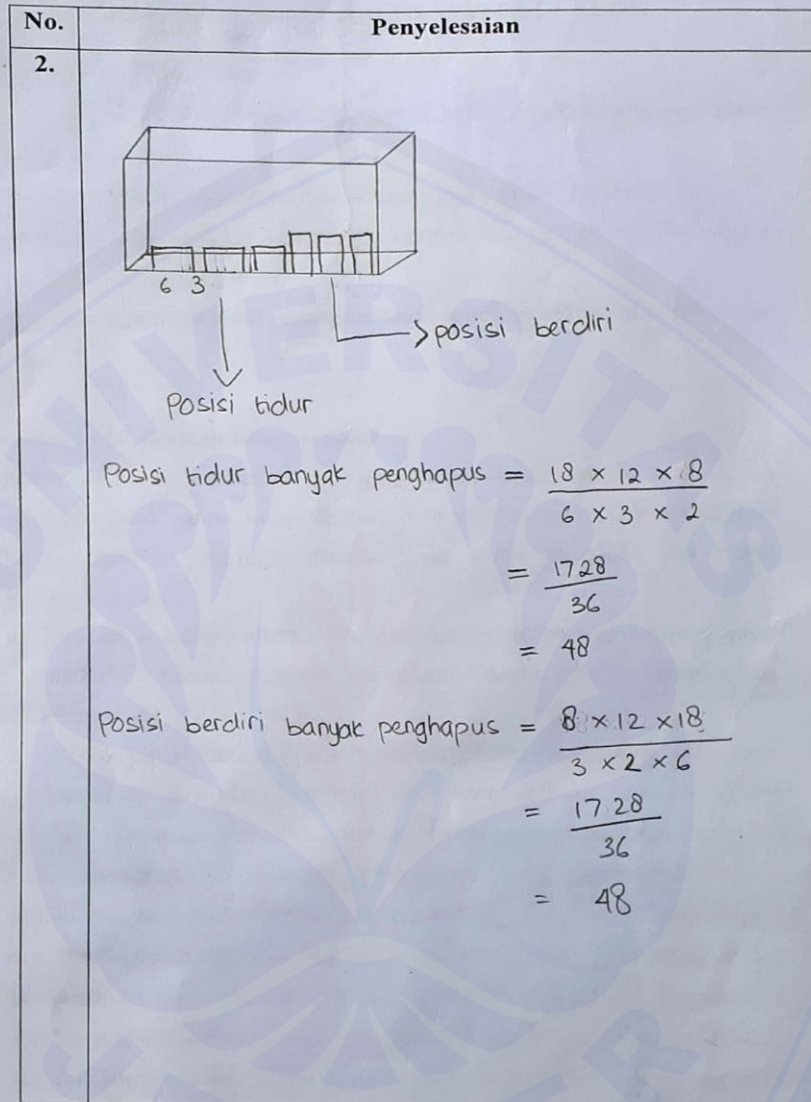 No. Penyelesaian
2.
6 3
posisi berdiri
Posisi tidur
Posisi tidur banyak penghapus = 18 × 12 × 8
6 × 3 × 2
= 1728
36
= 48
Posisi berdiri banyak penghapus = 8 × 12 × 18
3 × 2 × 6
= 1728
36
= 48
UNIVERSITAS